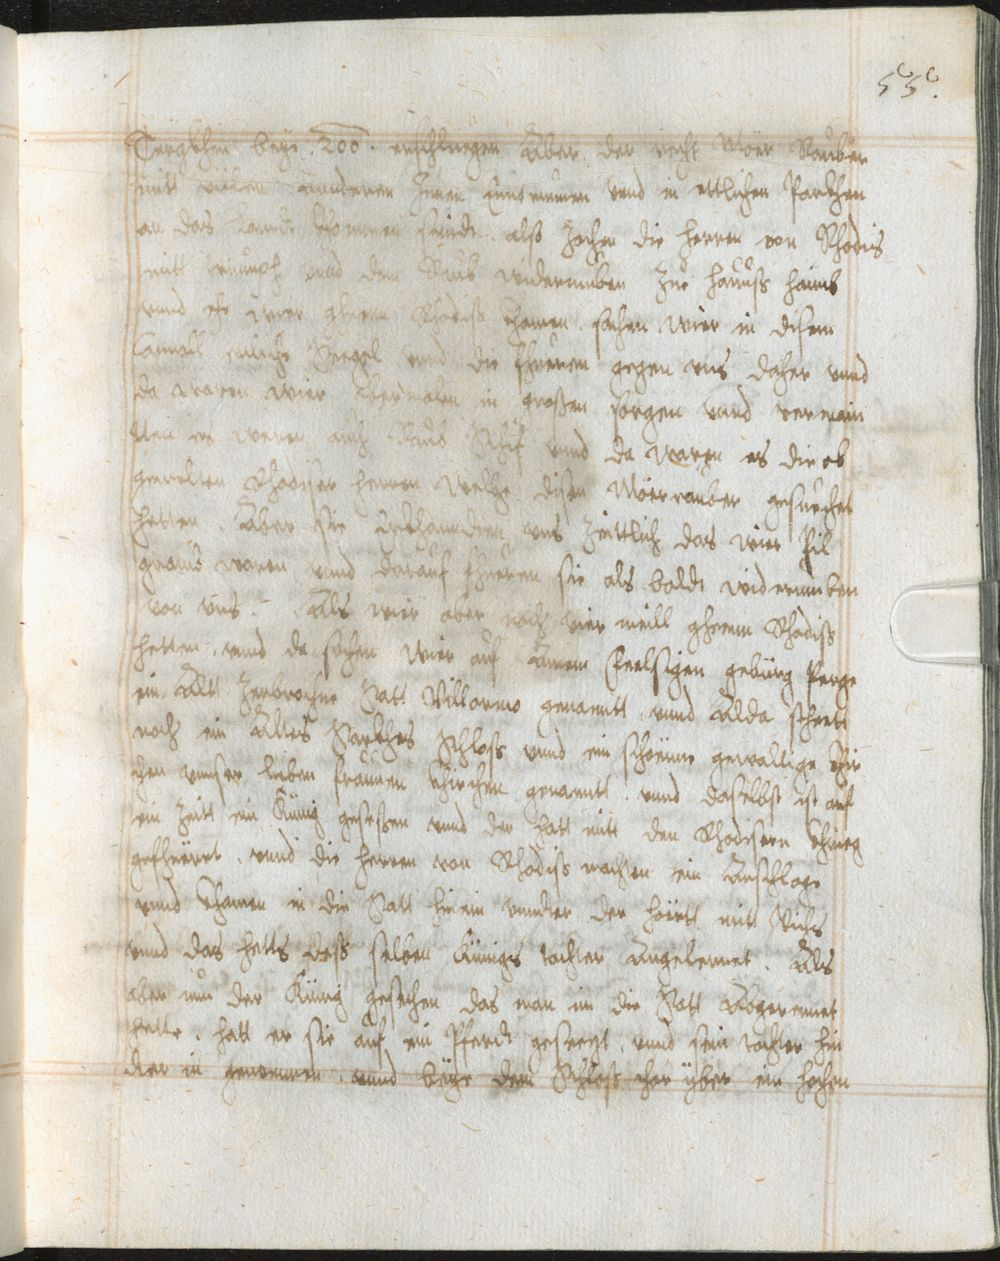 55.
Tergkhen beÿ .200. erschluegen Aber der recht Mör Rauber
mitt vilen anderen Innen entrunnen vnd in ettlichen Parkhen
an das Landt khommen seindt. alß Zochen die herren von Rhodis
mitt triumph vnd dem Raub widerumben Zue hauß haimb
vnnd ehe wier ghenn Rhodiß khamen. sachen wier in disem
Cannall etliche Seegel vnd die fhueren gegen vns daher vnnd
da waren wier abermalen in großen sorgen vnnd vermain
tten es weren auch Raub Schif vnnd da waren es die ob
gemelten Rhodiser herren welche disen Mörrauber gesuechet
hetten. Aber sie erkhanndten vns Zeittlich das wier Pil
gramb waren vnnd darauf fhueren sie als baldt widerumben
von vns. Als wier aber noch vier meill ghenn Rhodiß
hetten. vnnd da sachen wier auf ainem feelsigen gebürg Perge
ein Altt Zerbrochne Statt Villarmo genanntt. vnnd Alda stheet
noch ein Altes Starkhes Schloß vnnd ein schöenne gewalttige Khir
chen vnnser lieben frauen Khirchen genanntt. vnnd daselbst ist auf
ein Zeitt ein Künig gesessen vnnd der hatt mitt den Rhodisern Khrieg
gefhüerrt. vnnd die herren von Rhodiß machten ein Anschlage
vnnd khamen in die Statt hinein vnnder der hörtt mitt Vich
vnnd das hetts deß selben Künigs tochter Angelernet. Als
aber nun der Künig gesechen das man in die Statt Abgerennet
hette. hatt er sie auf ein Pferdt gesezt. vnnd sein tochter hin
der in genommen. vnnd beÿ dem Schloß thor über ein hochen